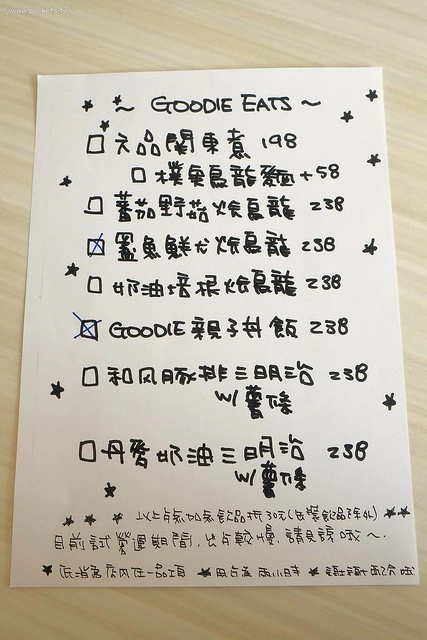 ～ GOODIE EATS ～
元品關東煮 198
烏龍麵 +58
蕃茄野菇燴烏龍 238
鮮 燴烏龍 238
奶油培根燴烏龍 238
GOODIE 親子丼飯 238
和風豚排三明治 238
W/ 薯條
丹麥奶油三明治 238
W/ 薯條
以上点加点飲品折30元(瓶裝飲品除外)
目前試營運期間, 出点較慢, 請見諒哦～
低消為店內任一品項 ★ 用点温 兩小時 ★